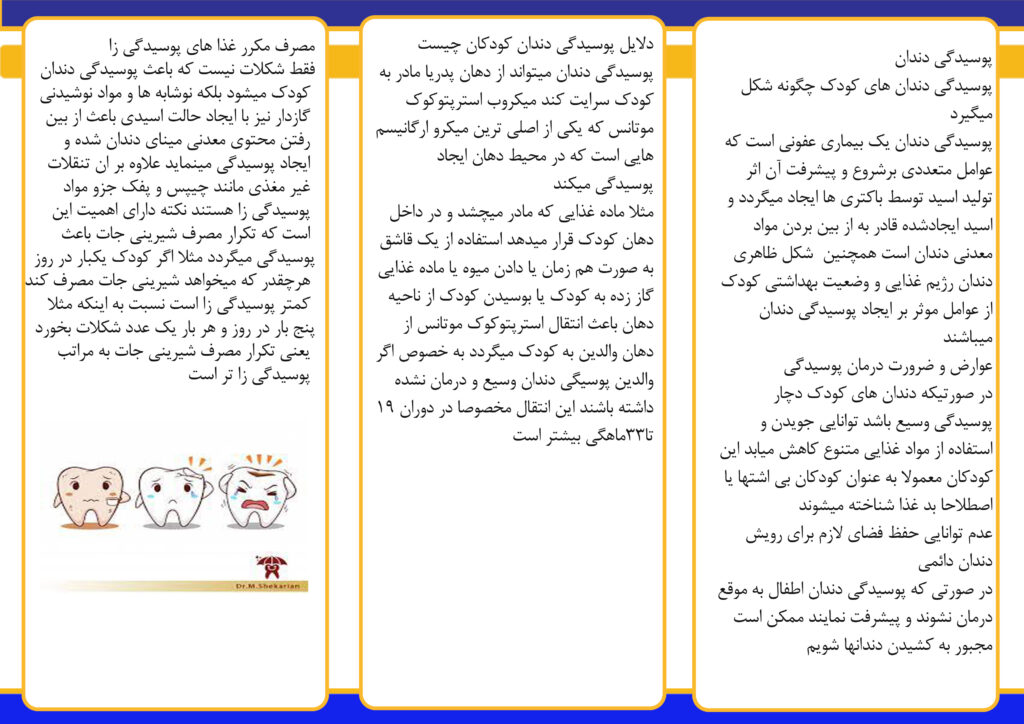 پوسیدگی دندان
پوسیدگی دندان های کودک چگونه شکل
میگیرد
پوسیدگی دندان یک بیماری عفونی است که
عوامل متعددی برشروع و پیشرفت آن اثر
تولید اسید توسط باکتری ها ایجاد میگردد و
اسید ایجادشده قادر به از بین بردن مواد
معدنی دندان است همچنین شکل ظاهری
دندان رژیم غذایی و وضعیت بهداشتی کودک
از عوامل موثر بر ایجاد پوسیدگی دندان
میباشند
عوارض و ضرورت درمان پوسیدگی
در صورتیکه دندان های کودک دچار
پوسیدگی وسیع باشد توانایی جویدن و
استفاده از مواد غذایی متنوع کاهش میابد این
کودکان معمولا به عنوان کودکان بی اشتها یا
اصطلاحا بد غذا شناخته میشوند
عدم توانایی حفظ فضای لازم برای رویش
دندان دائمی
در صورتی که پوسیدگی دندان اطفال به موقع
درمان نشوند و پیشرفت نمایند ممکن است
مجبور به کشیدن دندانها شویم
دلایل پوسیدگی دندان کودکان چیست
پوسیدگی دندان میتواند از دهان پدریا مادر به
کودک سرایت کند میکروب استرپتوکوک
موتانس که یکی از اصلی ترین میکرو ارگانیسم
هایی است که در محیط دهان ایجاد
پوسیدگی میکند
مثلا ماده غذایی که مادر میچشد و در داخل
دهان کودک قرار میدهد استفاده از یک قاشق
به صورت هم زمان یا دادن میوه یا ماده غذایی
گاز زده به کودک یا بوسیدن کودک از ناحیه
دهان باعث انتقال استرپتوکوک موتانس از
دهان والدین به کودک میگردد به خصوص اگر
والدین پوسیگی دندان وسیع و درمان نشده
داشته باشند این انتقال مخصوصا در دوران ۱۹
تا۳۳ماهگی بیشتر است
مصرف مکرر غذا های پوسیدگی زا
فقط شکلات نیست که باعث پوسیدگی دندان
کودک میشود بلکه نوشابه ها و مواد نوشیدنی
گازدار نیز با ایجاد حالت اسیدی باعث از بین
رفتن محتوی معدنی مینای دندان شده و
ایجاد پوسیدگی مینماید علاوه بر ان تنقلات
غیر مغذی مانند چیپس و پفک جزو مواد
پوسیدگی زا هستند نکته دارای اهمیت این
است که تکرار مصرف شیرینی جات باعث
پوسیدگی میگردد مثلا اگر کودک یکبار در روز
هرچقدر که میخواهد شیرینی جات مصرف کند
کمتر پوسیدگی زا است نسبت به اینکه مثلا
پنج بار در روز و هر بار یک عدد شکلات بخورد
یعنی تکرار مصرف شیرینی جات به مراتب
پوسیدگی زا تر است
Dr.M.Shekarian